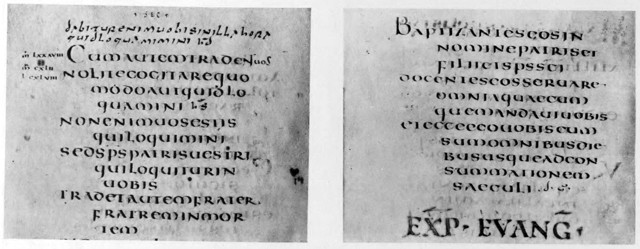 dabitur enim uobis in illa hora
quid loquamini
CUM AUTEM TRADEN UOS
NOLITE COGITARE QUO
MODO AUT QUID LO
QUAMINI
NON ENIM UOS ESTIS
QUI LOQUIMINI
SED SPS PATRIS UESTRI
QUI LOQUITUR IN
UOBIS
TRADET AUTEM FRATER
FRATREM IN MOR
TEM
BAPTIZANTES EOS IN
NOMINE PATRIS ET
FILII ET SPS SCI
DOCENTES EOS SERUARE
OMNIA QUAECUM
QUE MANDAUI UOBIS
ET ECCE EGO UOBISCUM
SUM OMNIBUS DIE
BUS USQUE AD CON
SUMMATIONEM
SAECULI
EXP · EVANG